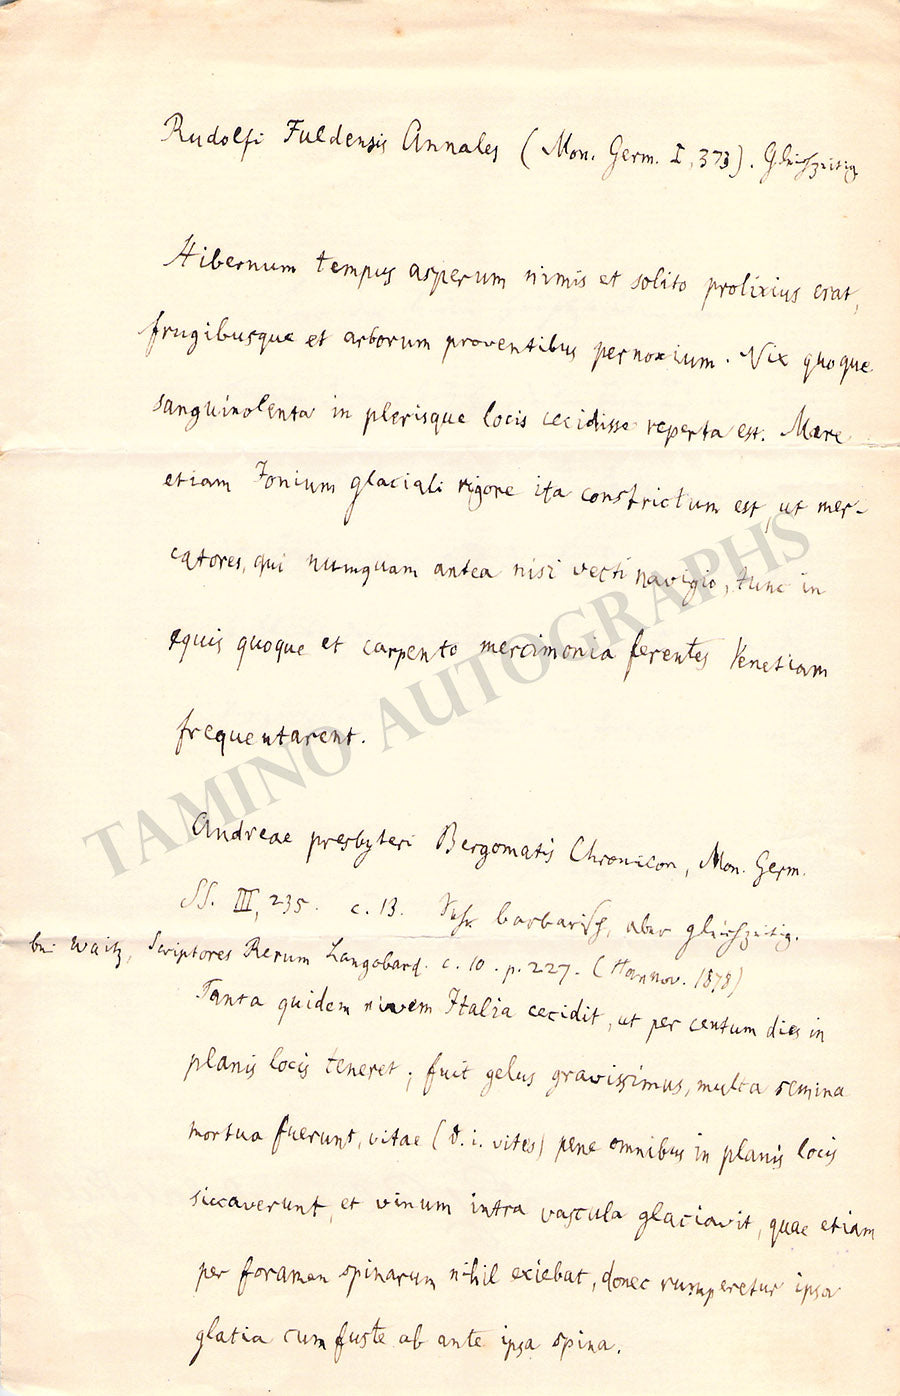 Rudolfi Fuldensis Annales (Mon. Germ. I, 373). Gleichzeitig
Hibernum tempus asperum nimis et solito prolixius erat,
frugibusque et arborum proventibus pernoxium. Nix quoque
sanguinolenta in plerisque locis cecidisse reperta est. Mare
etiam Ionium glaciali rigore ita constrictum est, ut mer-
catores, qui numquam antea nisi vecti navigio, tunc in
equis quoque et carpento mercimonia ferentes Venetiam
frequentarent.
Andreae presbyteri Bergomatis Chronicon, Mon. Germ.
SS. III, 235. c. 13. Sehr barbarisch, aber gleichzeitig.
bei Waitz, Scriptores Rerum Langobard. c. 10. p. 227. (Hannov. 1878)
Tanta quidem nivem Italia cecidit, ut per centum dies in
planis locis teneret; fuit gelus gravissimus, multa semina
mortua fuerunt, vitae (d. i. vites) pene omnibus in planis locis
siccaverunt, et vinum intra vascula glaciavit, quae etiam
per foramen spinarum nihil exiebat, donec rumperetur ipsa
glatia cum fuste ab ante ipsa spina.
TAMINO AUTOGRAPHS